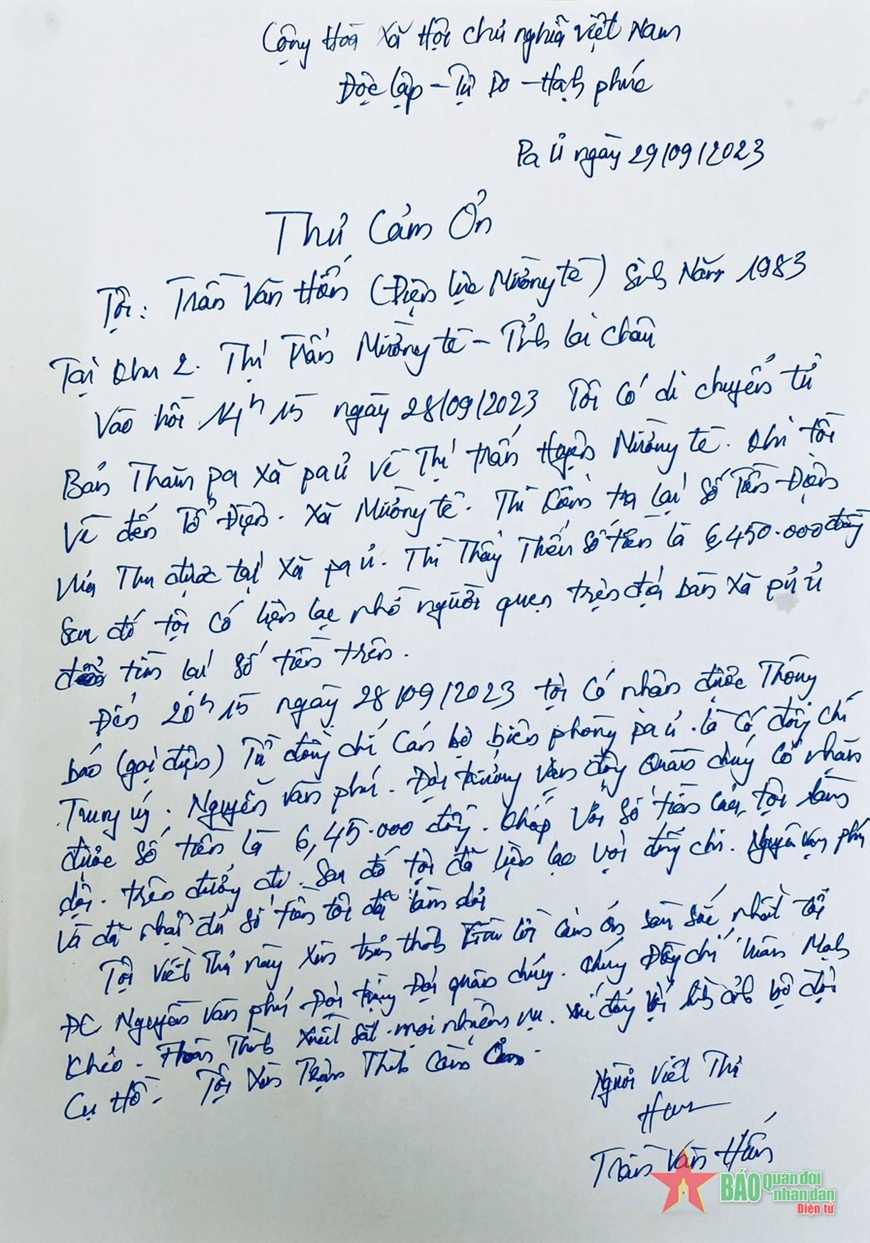 Cộng Hoà Xã Hội chủ nghĩa Việt Nam
Độc lập - Tự Do - Hạnh phúc
Pa ủ ngày 29/09/2023
Thư Cảm Ơn
Tôi: Trần Văn Hấn (Điện lực Mường tè) Sinh Năm 1983
Tại Khu 2. Thị trấn Mường tè - Tỉnh lai châu
Vào hồi 14h 15 ngày 28/09/2023 Tôi Có di chuyển từ
Bản Thăm pa xã pa ủ về Thị trấn Huyện Mường tè. Khi tôi
Về đến Tổ Điện. Xã Mường tè. Thì kiểm tra lại Số Tiền Điện
vừa Thu được tại xã pa ủ. Thì Thấy Thiếu Số tiền là 6,450.000 đồng
Sau đó tôi có liên lạc nhờ người quen trên địa bàn xã pủ ủ
để tìm lại số tiền trên.
Đến 20h 15 ngày 28/09/2023 tôi có nhận được Thông
báo (gọi điện) Từ đồng chí Cán bộ biên phòng pa ủ. là Có đồng chí
Trung úy. Nguyễn văn phú. Đội trưởng vận động Quần chúng Có nhặt
được số tiền là 6,45.000 đồng. khớp Với số tiền của tôi làm
rơi. trên đường đi. Sau đó tôi đã liên lạc với đồng chí. Nguyễn văn phú
và đã nhận đủ số tiền tôi đã làm rơi
Tôi viết Thư này xin trân thành lời cảm ơn sâu sắc nhất tới
ĐC Nguyễn văn phú Đội trưởng Đội quần chúng. chúng Đồng chí luôn Mạnh
khỏe. Hoàn Thành xuất sắt mọi nhiệm vụ. xứ đáng với hình ảnh bộ đội
Cụ Hồ. Tôi xin Trân Thành Cảm Ơn.
Người viết Thư
Trần Văn Hấn
BÁO Quân đội
nhân dân
Điện tử